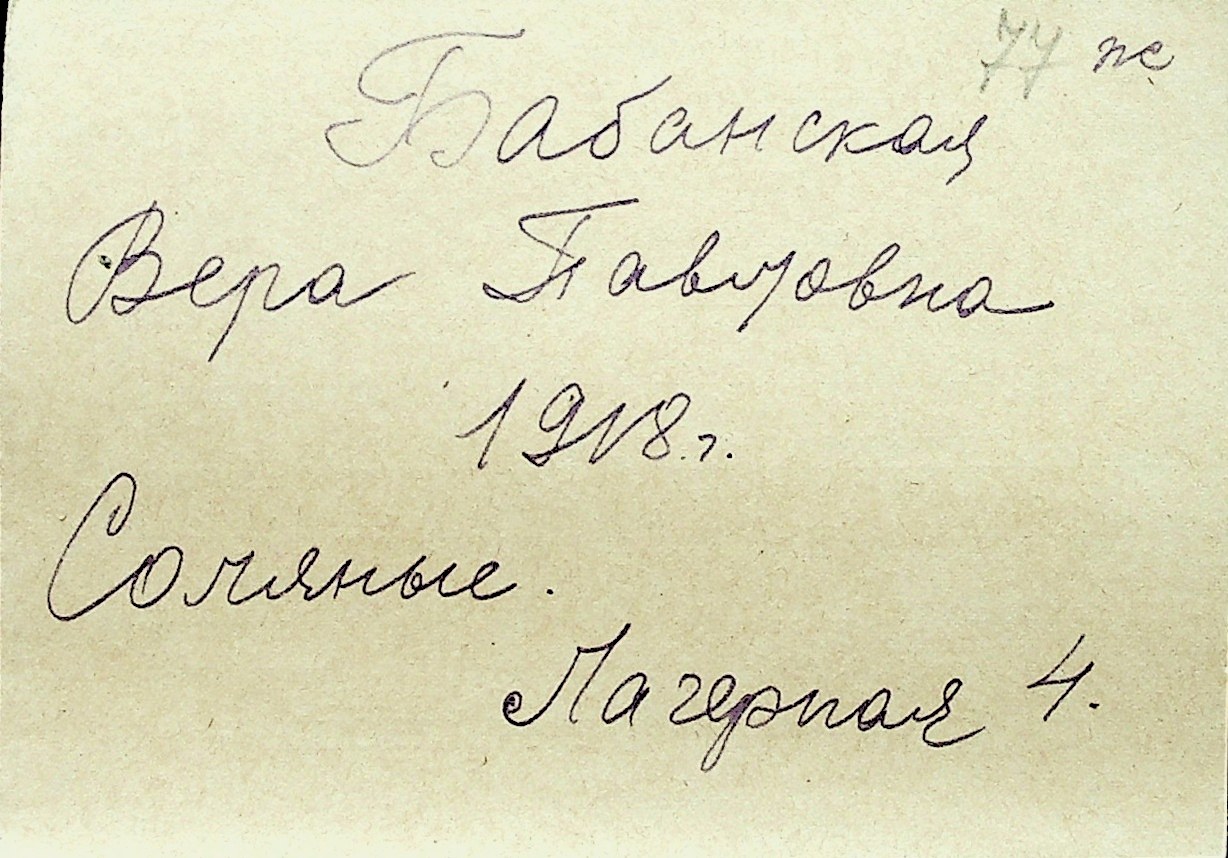 77 ж
Бабанская
Вера Павловна
1918 г.
Соляные.
Лагерная 4.